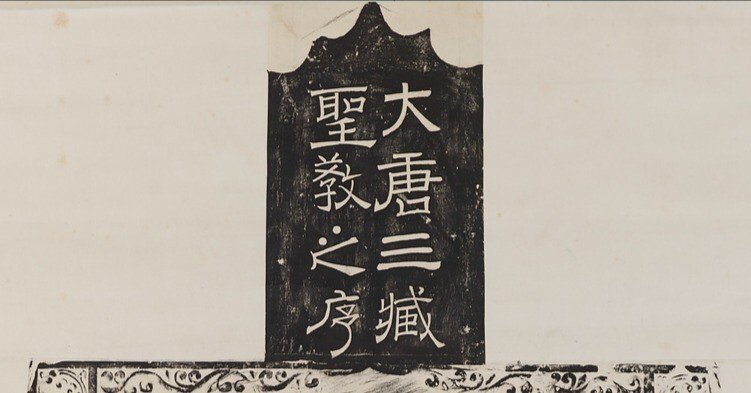 大唐三藏
聖教之序